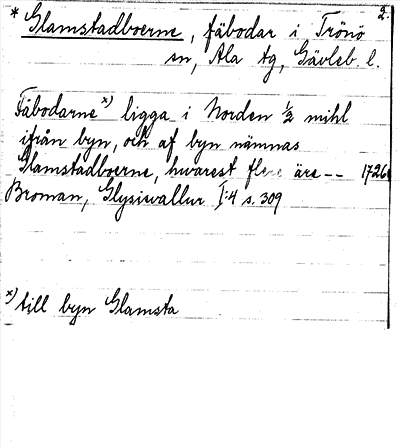 2.
* Glamstadboerne, fäbodar i Trönö
sn, Ala tg, Gävleb. l.
Fäbodarne x) ligga i Norden 1/2 mihl
ifrån byn, och af byn nämnas
Glamstadboerne, hwarest flere äre -- 1726
Broman, Glysiswallur I:4 s. 309
x) till byn Glamsta